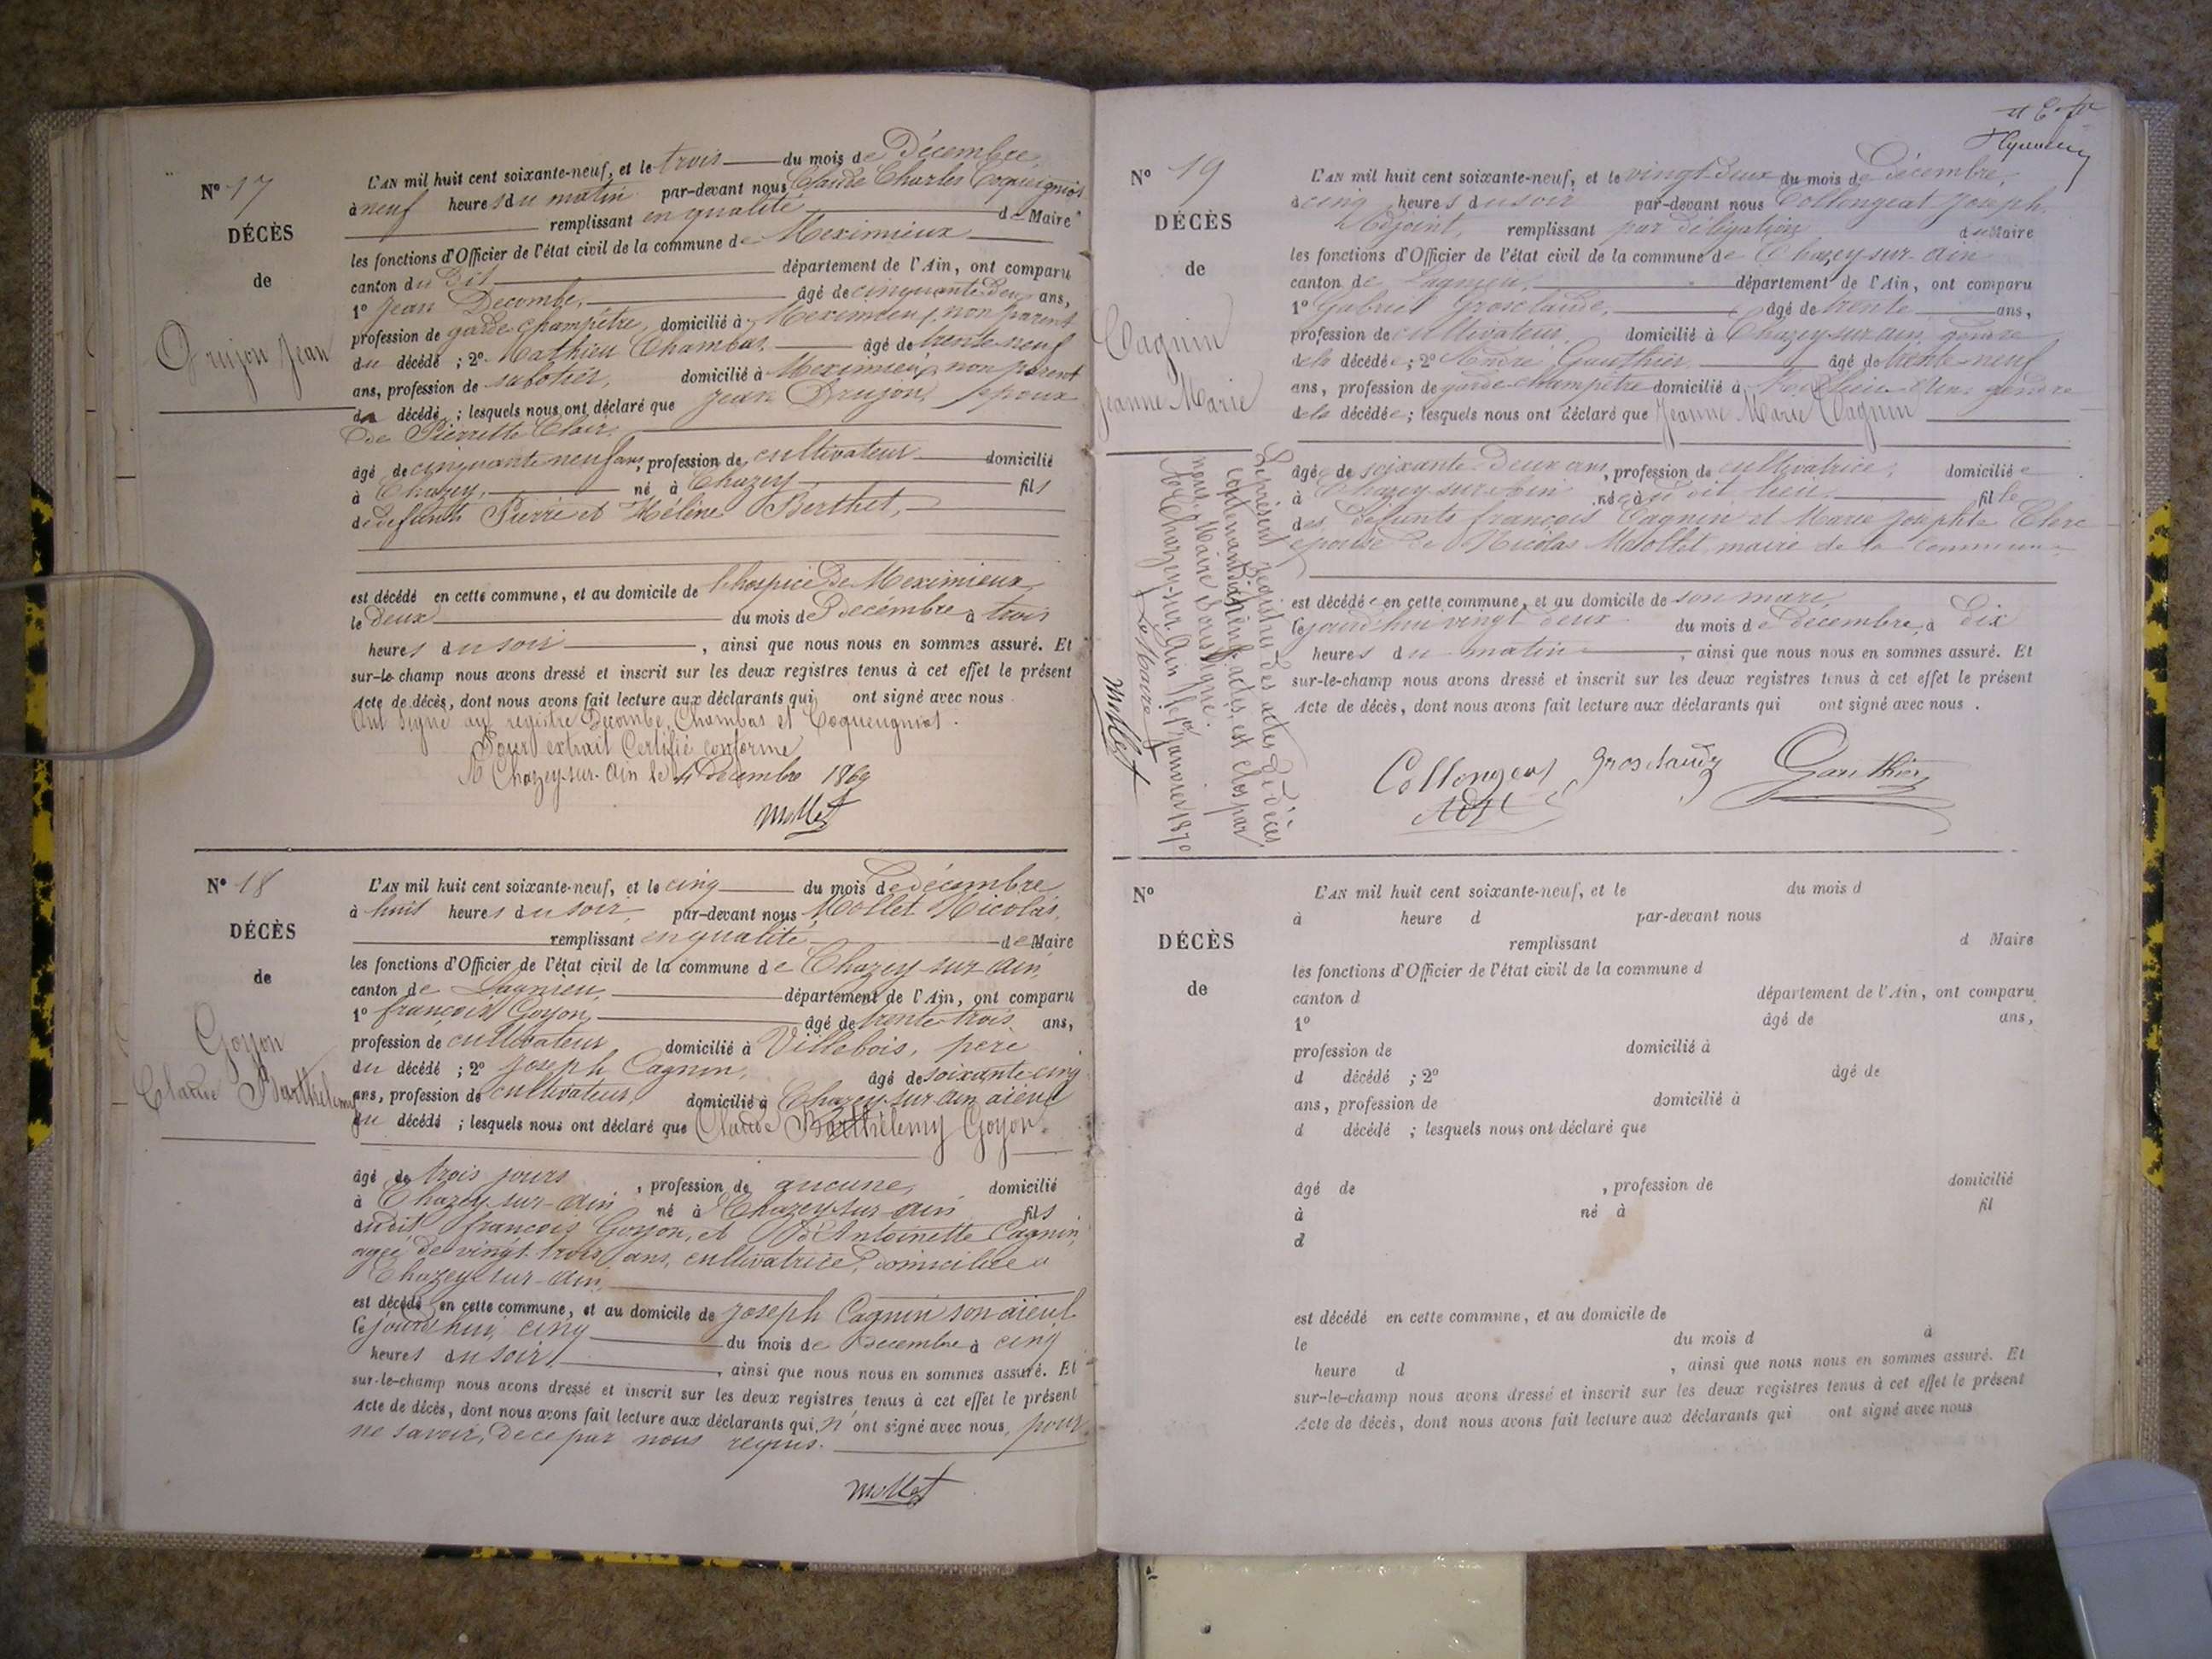 N° 17
DÉCÈS
de
Drujon Jean
L'AN mil huit cent soixante-neuf, et le trois du mois de Décembre,
à neuf heures du matin par-devant nous Claude Charles Coqueugniot
remplissant en qualité de Maire
les fonctions d'Officier de l'état civil de la commune de Meximieux
canton du Dit département de l'Ain, ont comparu
1° Jean Decombe, âgé de cinquante deux ans,
profession de garde champêtre, domicilié à Meximieux, non parent
du décédé ; 2° Mathieu Chambas âgé de trente neuf
ans, profession de sabotier, domicilié à Meximieux, non parent
du décédé ; lesquels nous ont déclaré que Jean Drujon, époux
de Pierrette Clair,
âgé de cinquante neuf ans, profession de cultivateur domicilié
à Chazey, né à Chazey fils
de défunts Pierre et Hélène Berthet,
est décédé en cette commune, et au domicile de l'hospice de Meximieux
le deux du mois de Décembre à trois
heures du soir , ainsi que nous nous en sommes assuré. Et
sur-le-champ nous avons dressé et inscrit sur les deux registres tenus à cet effet le présent
Acte de décès, dont nous avons fait lecture aux déclarants qui ont signé avec nous.
Ont signé au registre Decombe, Chambas et Coqueugniot.
Pour extrait Certifié conforme
A Chazey-sur-Ain le 4 Décembre 1869
Mollet
N° 18
DÉCÈS
de
Goyon
Claude Barthélemy
L'AN mil huit cent soixante-neuf, et le cinq du mois de décembre
à huit heures du soir, par-devant nous Mollet Nicolas,
remplissant en qualité de Maire
les fonctions d'Officier de l'état civil de la commune de Chazey sur Ain,
canton de Lagnieu, département de l'Ain, ont comparu
1° françois Goyon, âgé de trente trois ans,
profession de cultivateur domicilié à Villebois, pere
du décédé ; 2° Joseph Cagnin, âgé de soixante cinq
ans, profession de cultivateur, domicilié à Chazey-sur-Ain aïeul
du décédé ; lesquels nous ont déclaré que Claude Barthélemy Goyon
âgé de trois jours , profession de aucune, domicilié
à Chazey-sur-Ain né à Chazey-sur-Ain fils
dudit françois Goyon, et d'Antoinette Cagnin,
agée de vingt trois ans, cultivatrice, domiciliée à
Chazey-sur-Ain,
est décédé en cette commune, et au domicile de Joseph Cagnin son aïeul
le jourd'hui cinq du mois de Décembre à cinq
heures du soir , ainsi que nous nous en sommes assuré. Et
sur-le-champ nous avons dressé et inscrit sur les deux registres tenus à cet effet le présent
Acte de décès, dont nous avons fait lecture aux déclarants qui n'ont signé avec nous, pour
ne savoir, de ce par nous requis.
Mollet
N° 19
DÉCÈS
de
Cagnin
Jeanne Marie
L'AN mil huit cent soixante-neuf, et le vingt-deux du mois de décembre,
à cinq heures du soir par-devant nous Collongeat Joseph
Adjoint, remplissant par délégation du Maire
les fonctions d'Officier de l'état civil de la commune de Chazey-sur-Ain
canton de Lagnieu, département de l'Ain, ont comparu
1° Gabriel Grosclaude, âgé de trente ans,
profession de cultivateur domicilié à Chazey sur Ain, gendre
de la décédée ; 2° André Gauthier âgé de trente-neuf
ans, profession de garde-champêtre domicilié à gendre
de la décédée ; lesquels nous ont déclaré que Jeanne Marie Cagnin
âgée de soixante-deux ans, profession de cultivatrice, domiciliée
à Chazey-sur-Ain née à dit lieu, fille
des défunts françois Cagnin et Marie Josephte Clerc
épouse de Nicolas Mollet maire de la commune
est décédée en cette commune, et au domicile de son mari,
le jourd'hui vingt deux du mois de décembre, à dix
heures du matin , ainsi que nous nous en sommes assuré. Et
sur-le-champ nous avons dressé et inscrit sur les deux registres tenus à cet effet le présent
Acte de décès, dont nous avons fait lecture aux déclarants qui ont signé avec nous.
Collongeat Grosclaude Gauthier
Adjt
Le présent registre des actes de décès,
contenant dix neuf actes, est clos par
nous, Maire soussigné.
A Chazey-sur-Ain le 1er Janvier 1870
Le Maire
Mollet
N°
DÉCÈS
de
L'AN mil huit cent soixante-neuf, et le du mois d
à heure d par-devant nous
remplissant d Maire
les fonctions d'Officier de l'état civil de la commune d
canton d département de l'Ain, ont comparu
1° âgé de ans,
profession de domicilié à
d décédé ; 2° âgé de
ans, profession de domicilié à
d décédé ; lesquels nous ont déclaré que
âgé de , profession de domicilié
à né à fil
d
est décédé en cette commune, et au domicile de
le du mois d à
heure d , ainsi que nous nous en sommes assuré. Et
sur-le-champ nous avons dressé et inscrit sur les deux registres tenus à cet effet le présent
Acte de décès, dont nous avons fait lecture aux déclarants qui ont signé avec nous